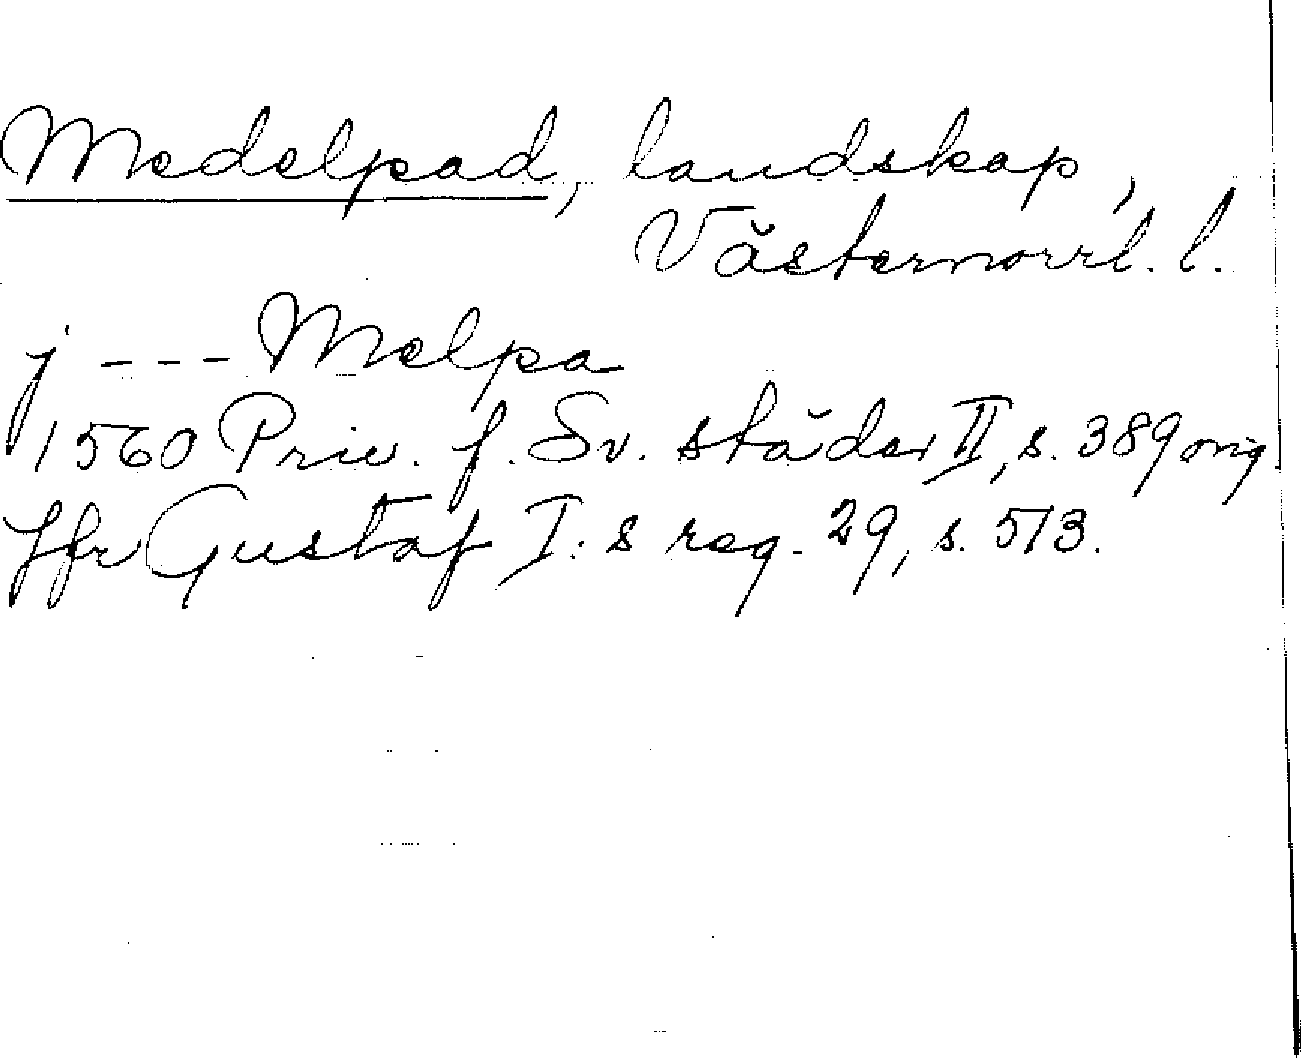 Medelpad, landskap,
Västernorrl. l.
j --- Melpa
1560 Priv. f. Sv. städer II, s. 389 orig.
Jfr Gustaf I:s reg. 29, s. 513.